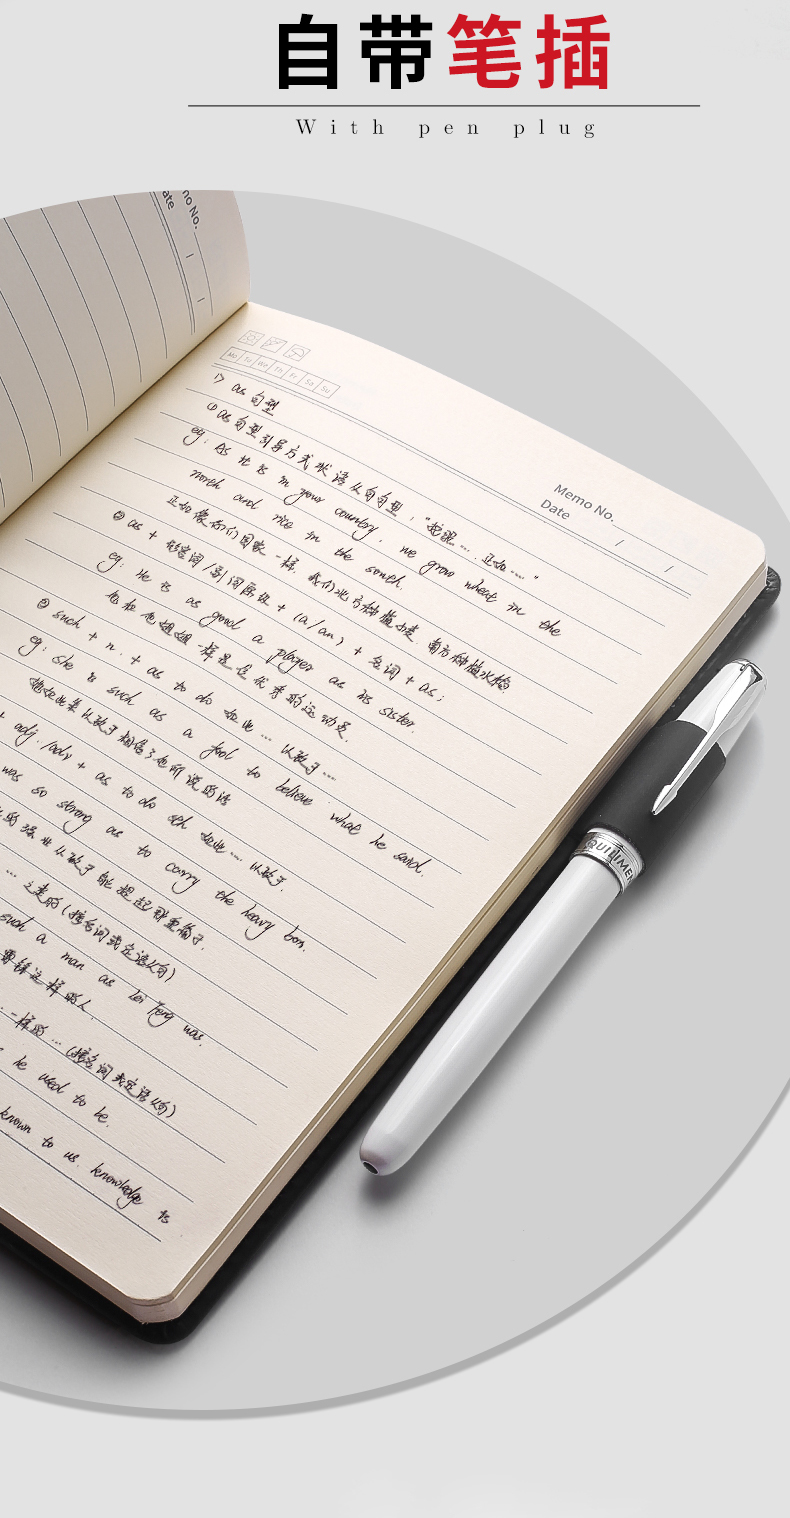 自带笔插
With pen plug
Memo No.
Date
Mo Tu We Th Fr Sa Su
1> as 句型
① as 句型引导方式状语从句句型："按照… . 正如……"
eg: As it is in your country, we grow wheat in the
north and rice in the south.
正如像你们国家一样，我们北方种植小麦，南方种植水稻
② as + 形容词/副词原级 + (a/an) + 名词 + as;
eg: He is as good a player as his sister.
他和他姐姐一样是位优秀的运动员.
③ such + n. + as to do 如此… 以致于……
eg: she is such as a fool to believe what he said.
她如此笨以致于相信了他所说的话
+ adj./adv + as to do sth 如此…… 以致于.
was so strong as to carry the heavy box.
的强壮以致于能提起那重箱子.
… 之类的(接名词或定语从句)
such a man as Lei Feng was.
雷锋这样的人.
一样的 … (接名词或定语从句)
he used to be.
known to us, knowledge is
QUILIMEN